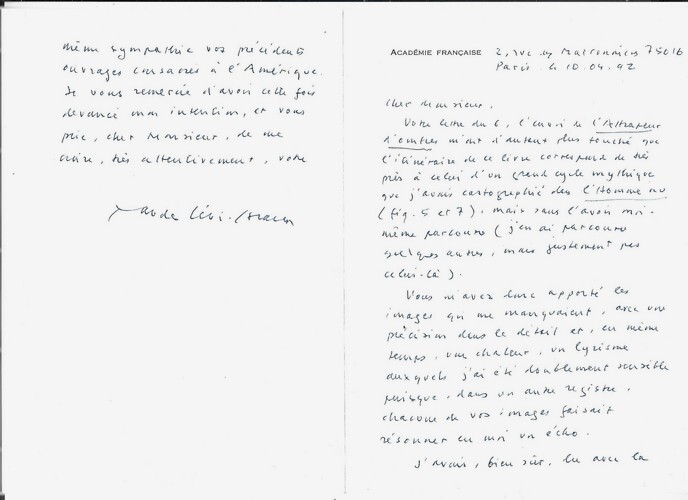 ACADÉMIE FRANÇAISE
2, rue des Marronniers 75016
Paris. le 10.04.92
Cher Monsieur,
Votre lettre du 6, l'envoi de l'Attrapeur
d'ombres m'ont d'autant plus touché que
l'itinéraire de ce livre correspond de très
près à celui d'un grand cycle mythique
que j'avais cartographié dans l'Homme nu
(fig. 5 et 7), mais sans l'avoir moi-
même parcouru (j'en ai parcouru
quelques autres, mais justement pas
celui-là).
Vous m'avez donc apporté les
images qui me manquaient, avec une
précision dans le détail et, en même
temps, une chaleur, un lyrisme
auxquels j'ai été doublement sensible
puisque, dans un autre registre,
chacune de vos images faisait
résonner en moi un écho.
J'avais, bien sûr, lu avec la
même sympathie vos précédents
ouvrages consacrés à l'Amérique.
Je vous remercie d'avoir cette fois
devancé mon intention, et vous
prie, cher Monsieur, de me
croire, très attentivement, votre
Claude Lévi-Strauss